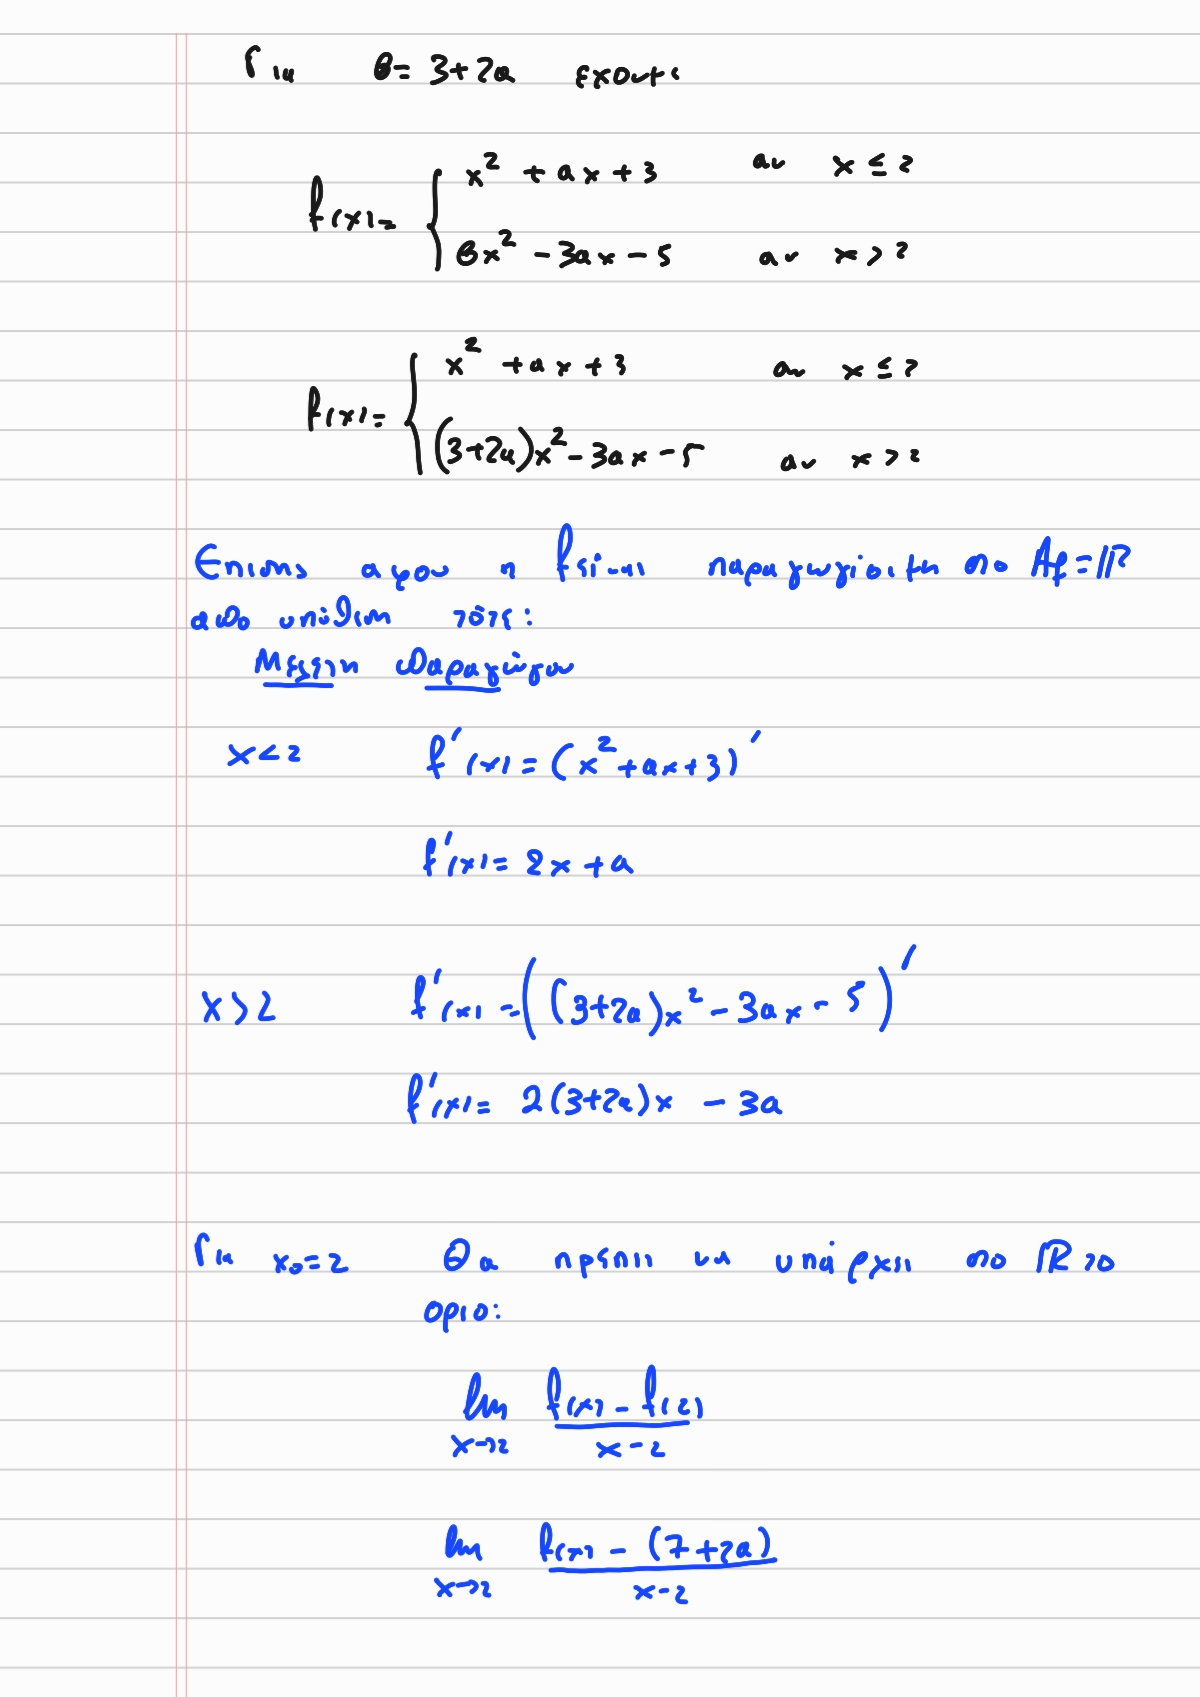 Για β= 3+2α έχουμε
f(x)= { x² + αx + 3 αν x ≤ 2
βx² - 3αx - 5 αν x > 2
f(x)= { x² + αx + 3 αν x ≤ 2
(3+2α)x² - 3αx - 5 αν x > 2
Επισης αφου η f είναι παραγωγίσιμη στο Af = ℝ
απο υπόθεση τότε:
Μελετη Παραγώγου
x < 2 f'(x) = (x² + αx + 3)'
f'(x) = 2x + α
x > 2 f'(x) = ((3+2α)x² - 3αx - 5)'
f'(x) = 2(3+2α)x - 3α
Για x₀ = 2 Θα πρεπει να υπάρχει στο ℝ το
οριο:
lim x→2 (f(x) - f(2))/(x - 2)
lim x→2 (f(x) - (7+2α))/(x - 2)